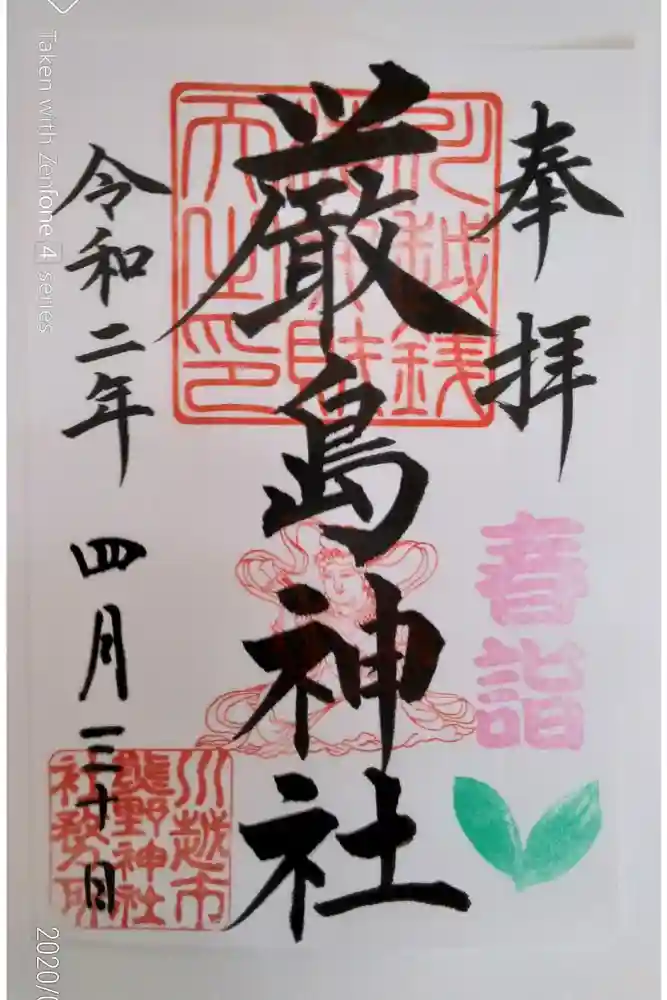 奉拝
春詣
川越銭
洗弁財
天之印
厳島神社
令和二年 四月三十日
川越市
熊野神社
社務所
Taken with Zenfone 4 series